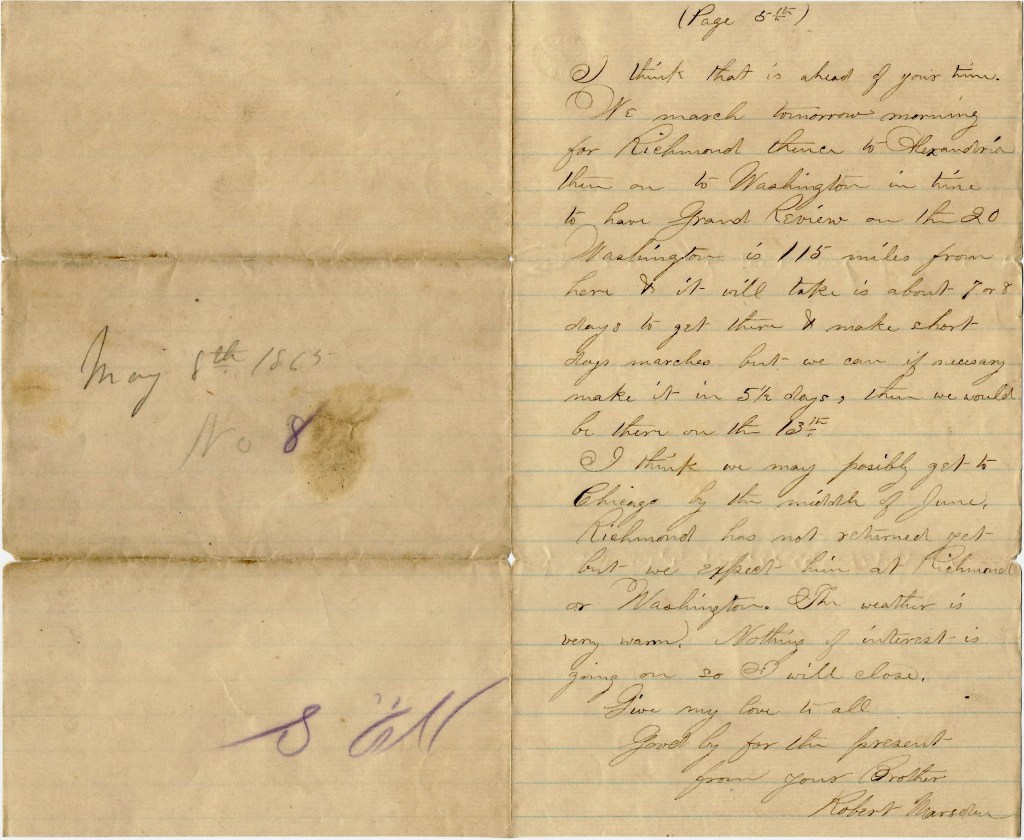 May 8th 1865
No 8
No 8
(Page 5th)
I think that is ahead of your time.
We march tomorrow morning
for Richmond thence to Alexandria
then on to Washington in time
to have Grand Review on the 20
Washington is 115 miles from
here & it will take is about 7 or 8
days to get there & make short
days marches but we can if necesary
make it in 5½ days, then we would
be there on the 13th.
I think we may posibly get to
Chicago by the middle of June.
Richmond has not returned yet
but we expect him at Richmond
or Washington. The weather is
very warm. Nothing of interest is
going on so I will close.
Give my love to all
Good by for the present
from your Brother
Robert Marsden